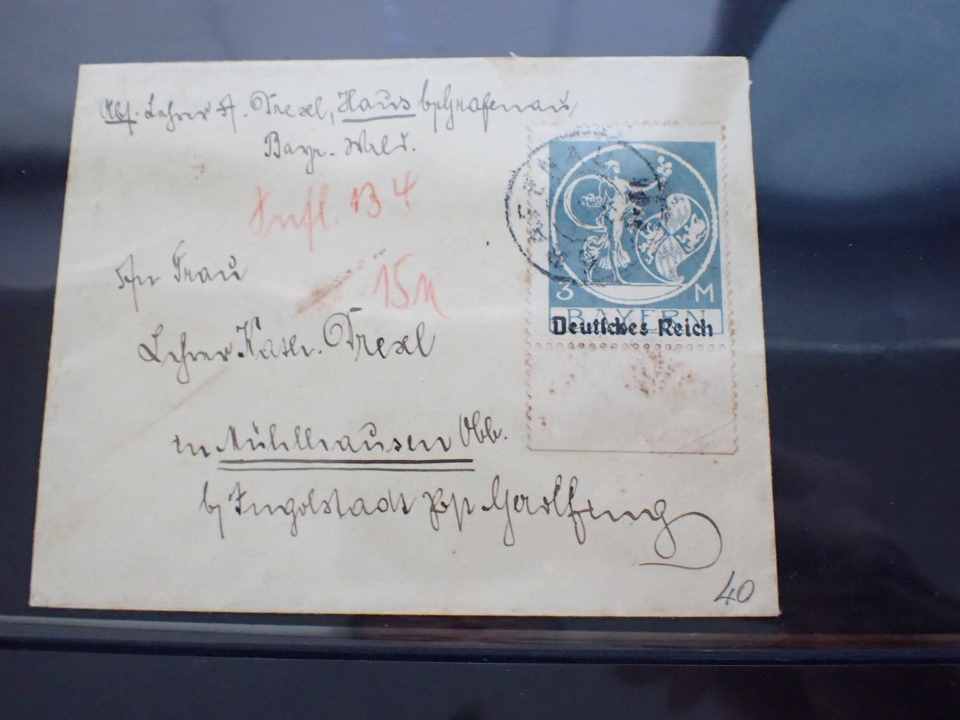 Abs. Lehrer A. Drexl, Haus b/Grafenau,
Bayr. Wald.
Infl. B 4
15 M
An Frau
Lehrer Kath. Drexl
in Mühlhausen Obb.
b/ Ingolstadt Gaolfing
40
3 M
BAYERN
Deutsches Reich